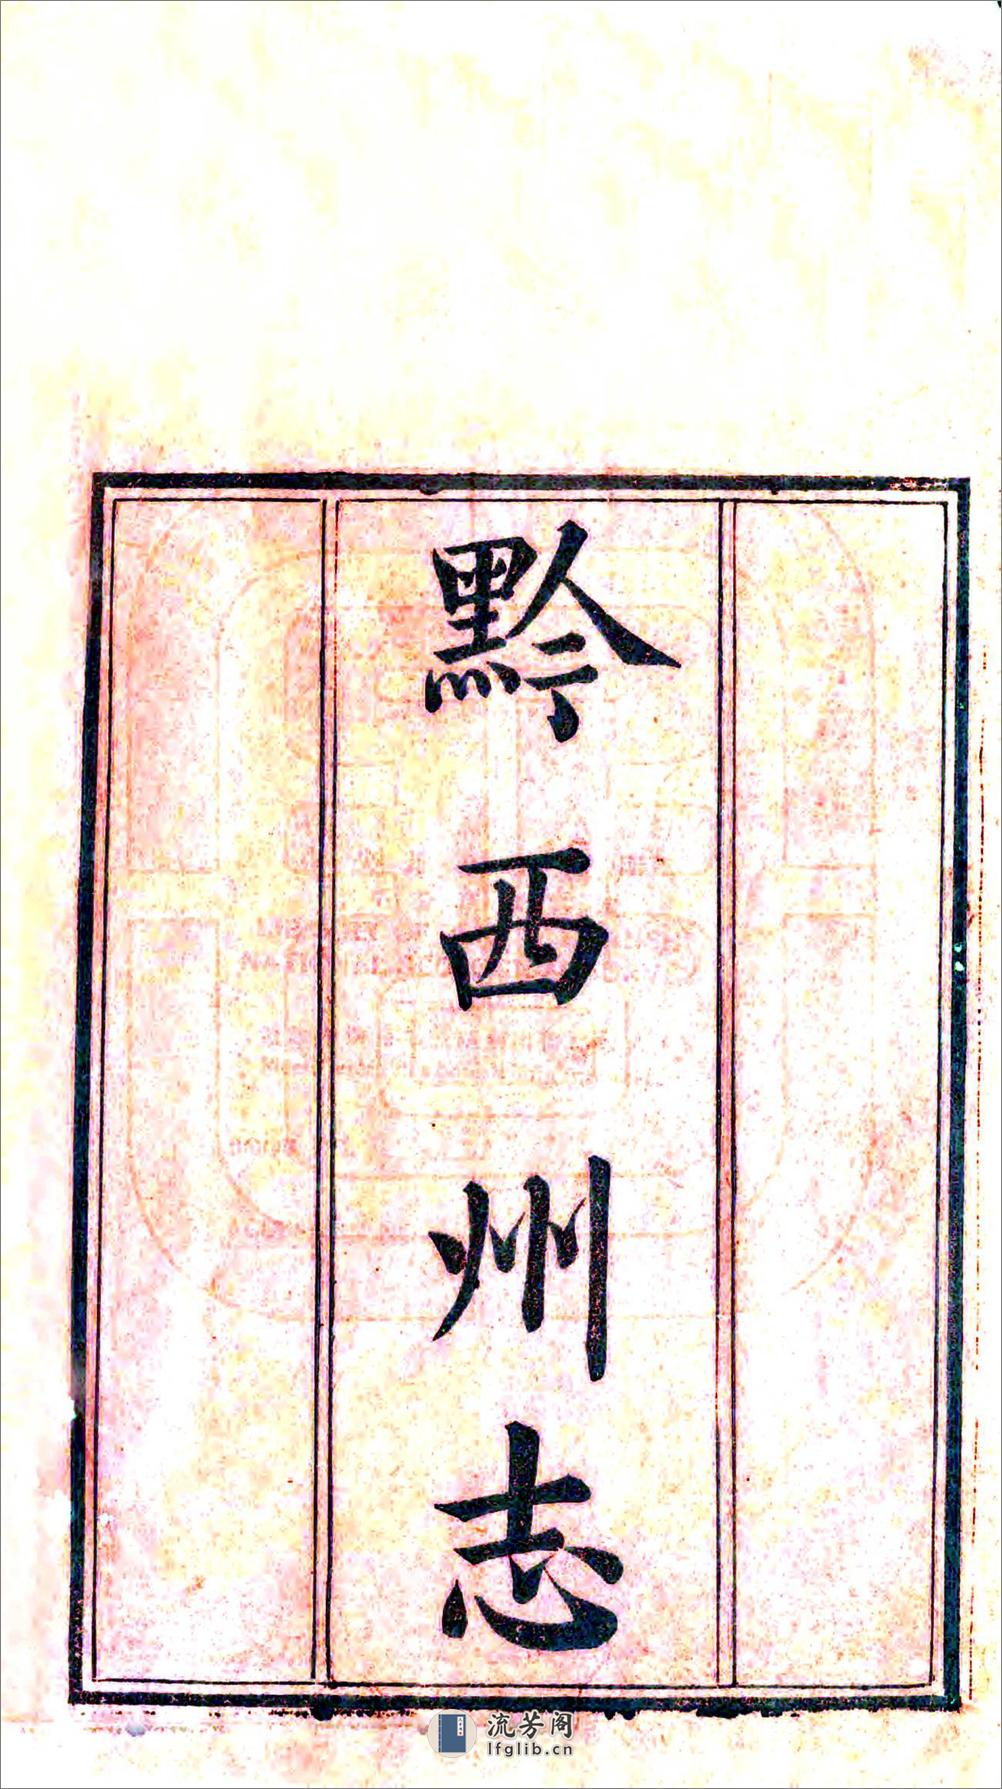 黔西州志
流芳阁
lfglib.cn